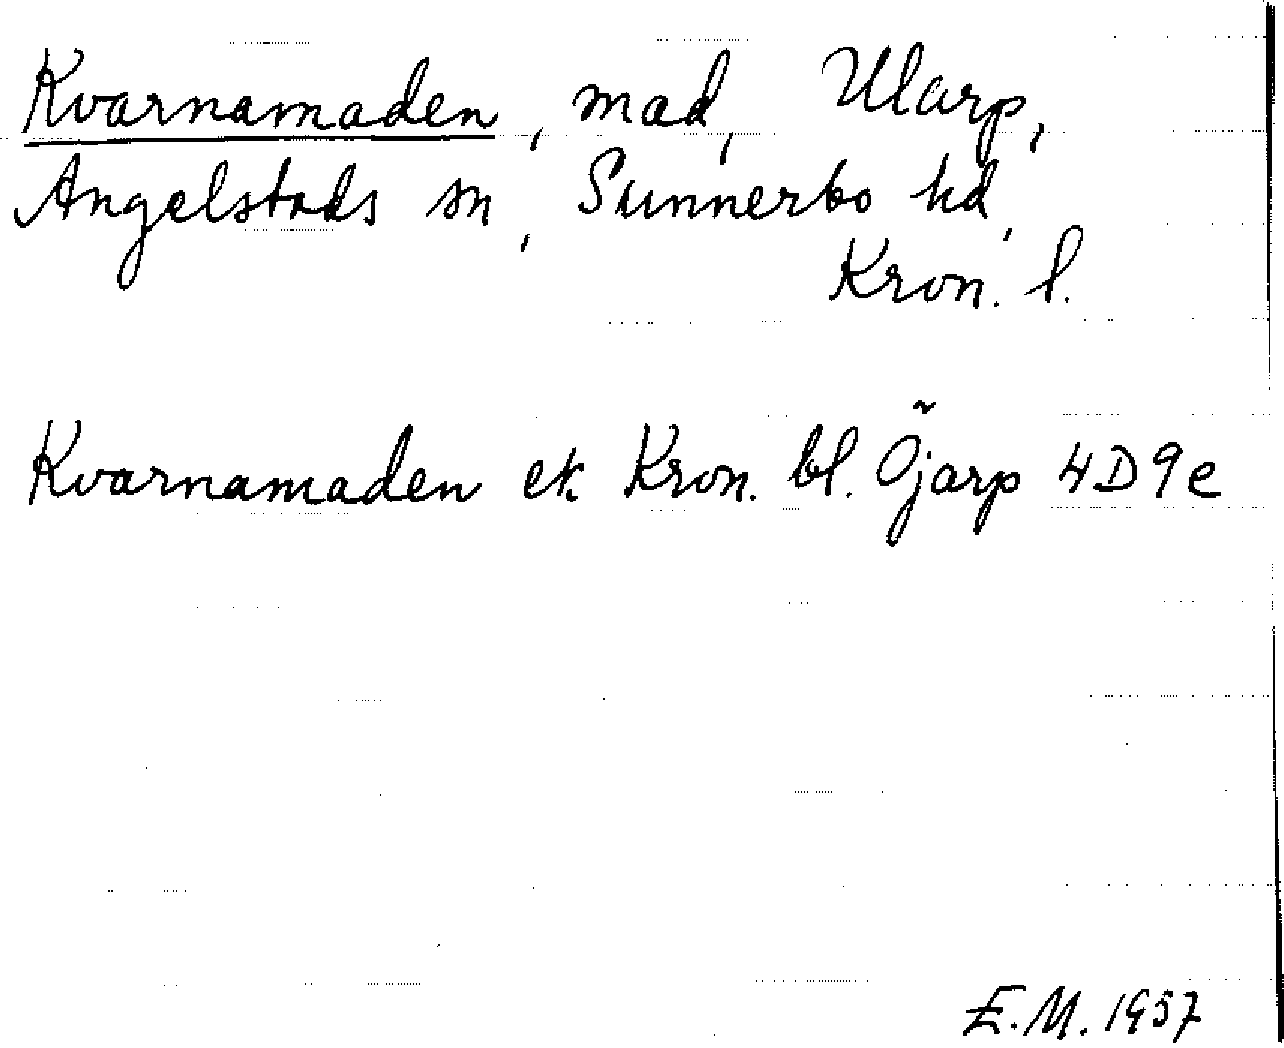 Kvarnamaden, mad, Ularp,
Angelstads sn, Sunnerbo hd,
Kron. l.
Kvarnamaden ek Kron. bl. Öjarp 4D9e
E.M. 1957